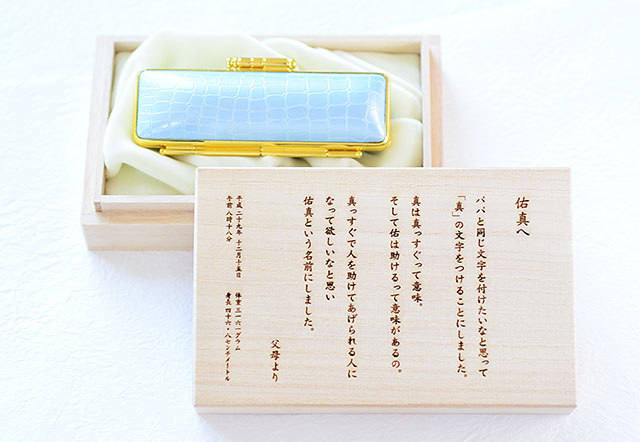 佑真へ
パパと同じ文字を付けたいなと思って
「真」の文字をつけることにしました。
真は真っすぐって意味。
そして佑は助けるって意味があるの。
真っすぐで人を助けてあげられる人に
なって欲しいなと思い
佑真という名前にしました。
父母より
平成二十九年 十二月十五日
午前 八時十八分
体重 三一六一グラム
身長 四十六・八センチメートル